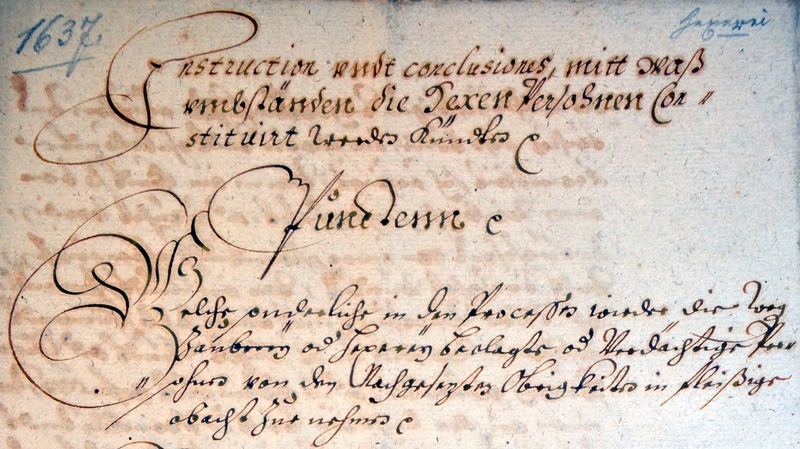 1637
Hexerei
Instruction vndt conclusiones, mitt waß
vmbständen die Hexen Persohnen Con„
stituirt werden Köndten
Puncktenn
Welche sonderliche in den Processen wieder die weg
Zauberey od Hexerey beclagte od Verdächtige Per„
„sohnen von den Nachgesezten Obrigkeiten in fleißige
obacht Zue nehmen